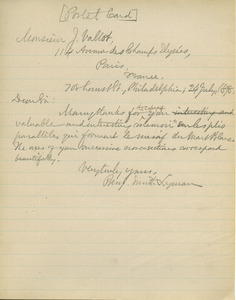 [Postal Card]
Monsieur J. Vallot,
114 Avenue des Champs Elysées,
Paris,
France.
708 Locust St., Philadelphia, 24 July,
Dear Sir:
Many thanks for your interesting and
valuable and interesting memoir sur les plis
parallèles qui forment le massif du Mont Blanc.
The axes of your successive conrrections correspond
beautifully.
Very truly yours,
Benj. Smith Lyman